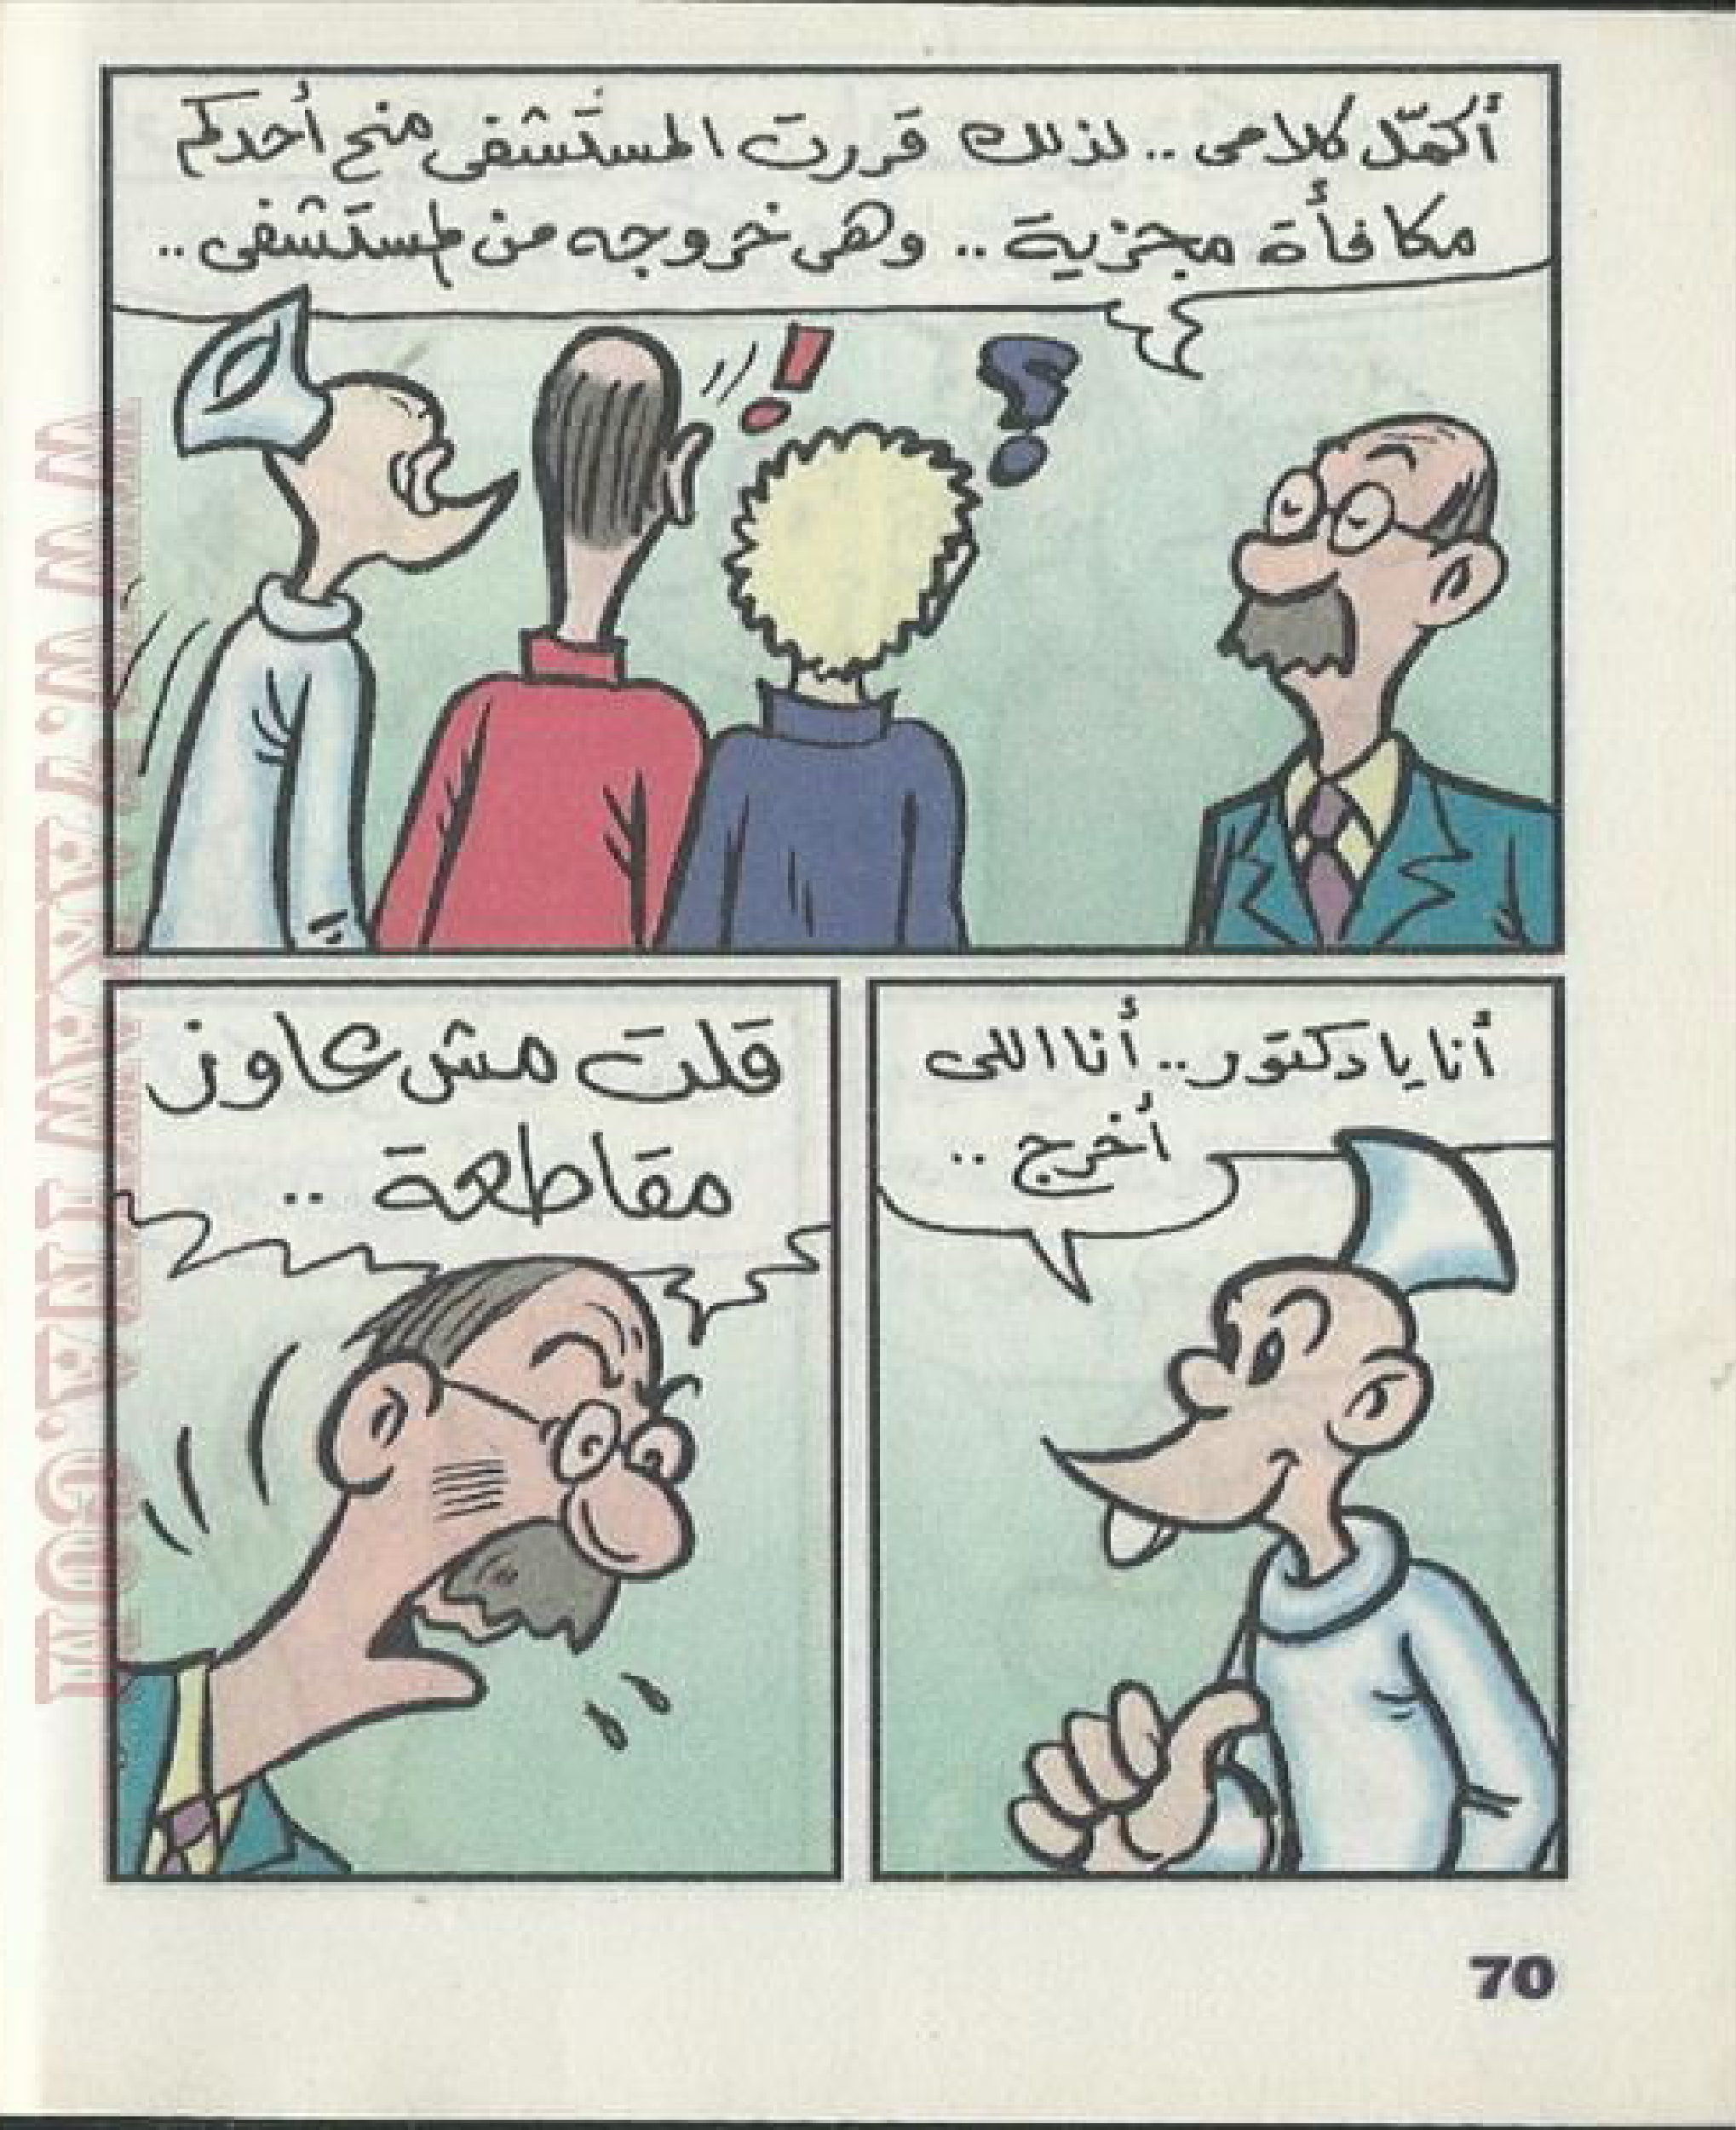 أكمّل كلامى .. لذلك قررت المستشفى منح أحدكم
مكافأة مجزية .. وهى خروجه من المستشفى ..
أنا يا دكتور .. أنا اللى
أخرج ..
قلت مش عاوز
مقاطعة ..
70